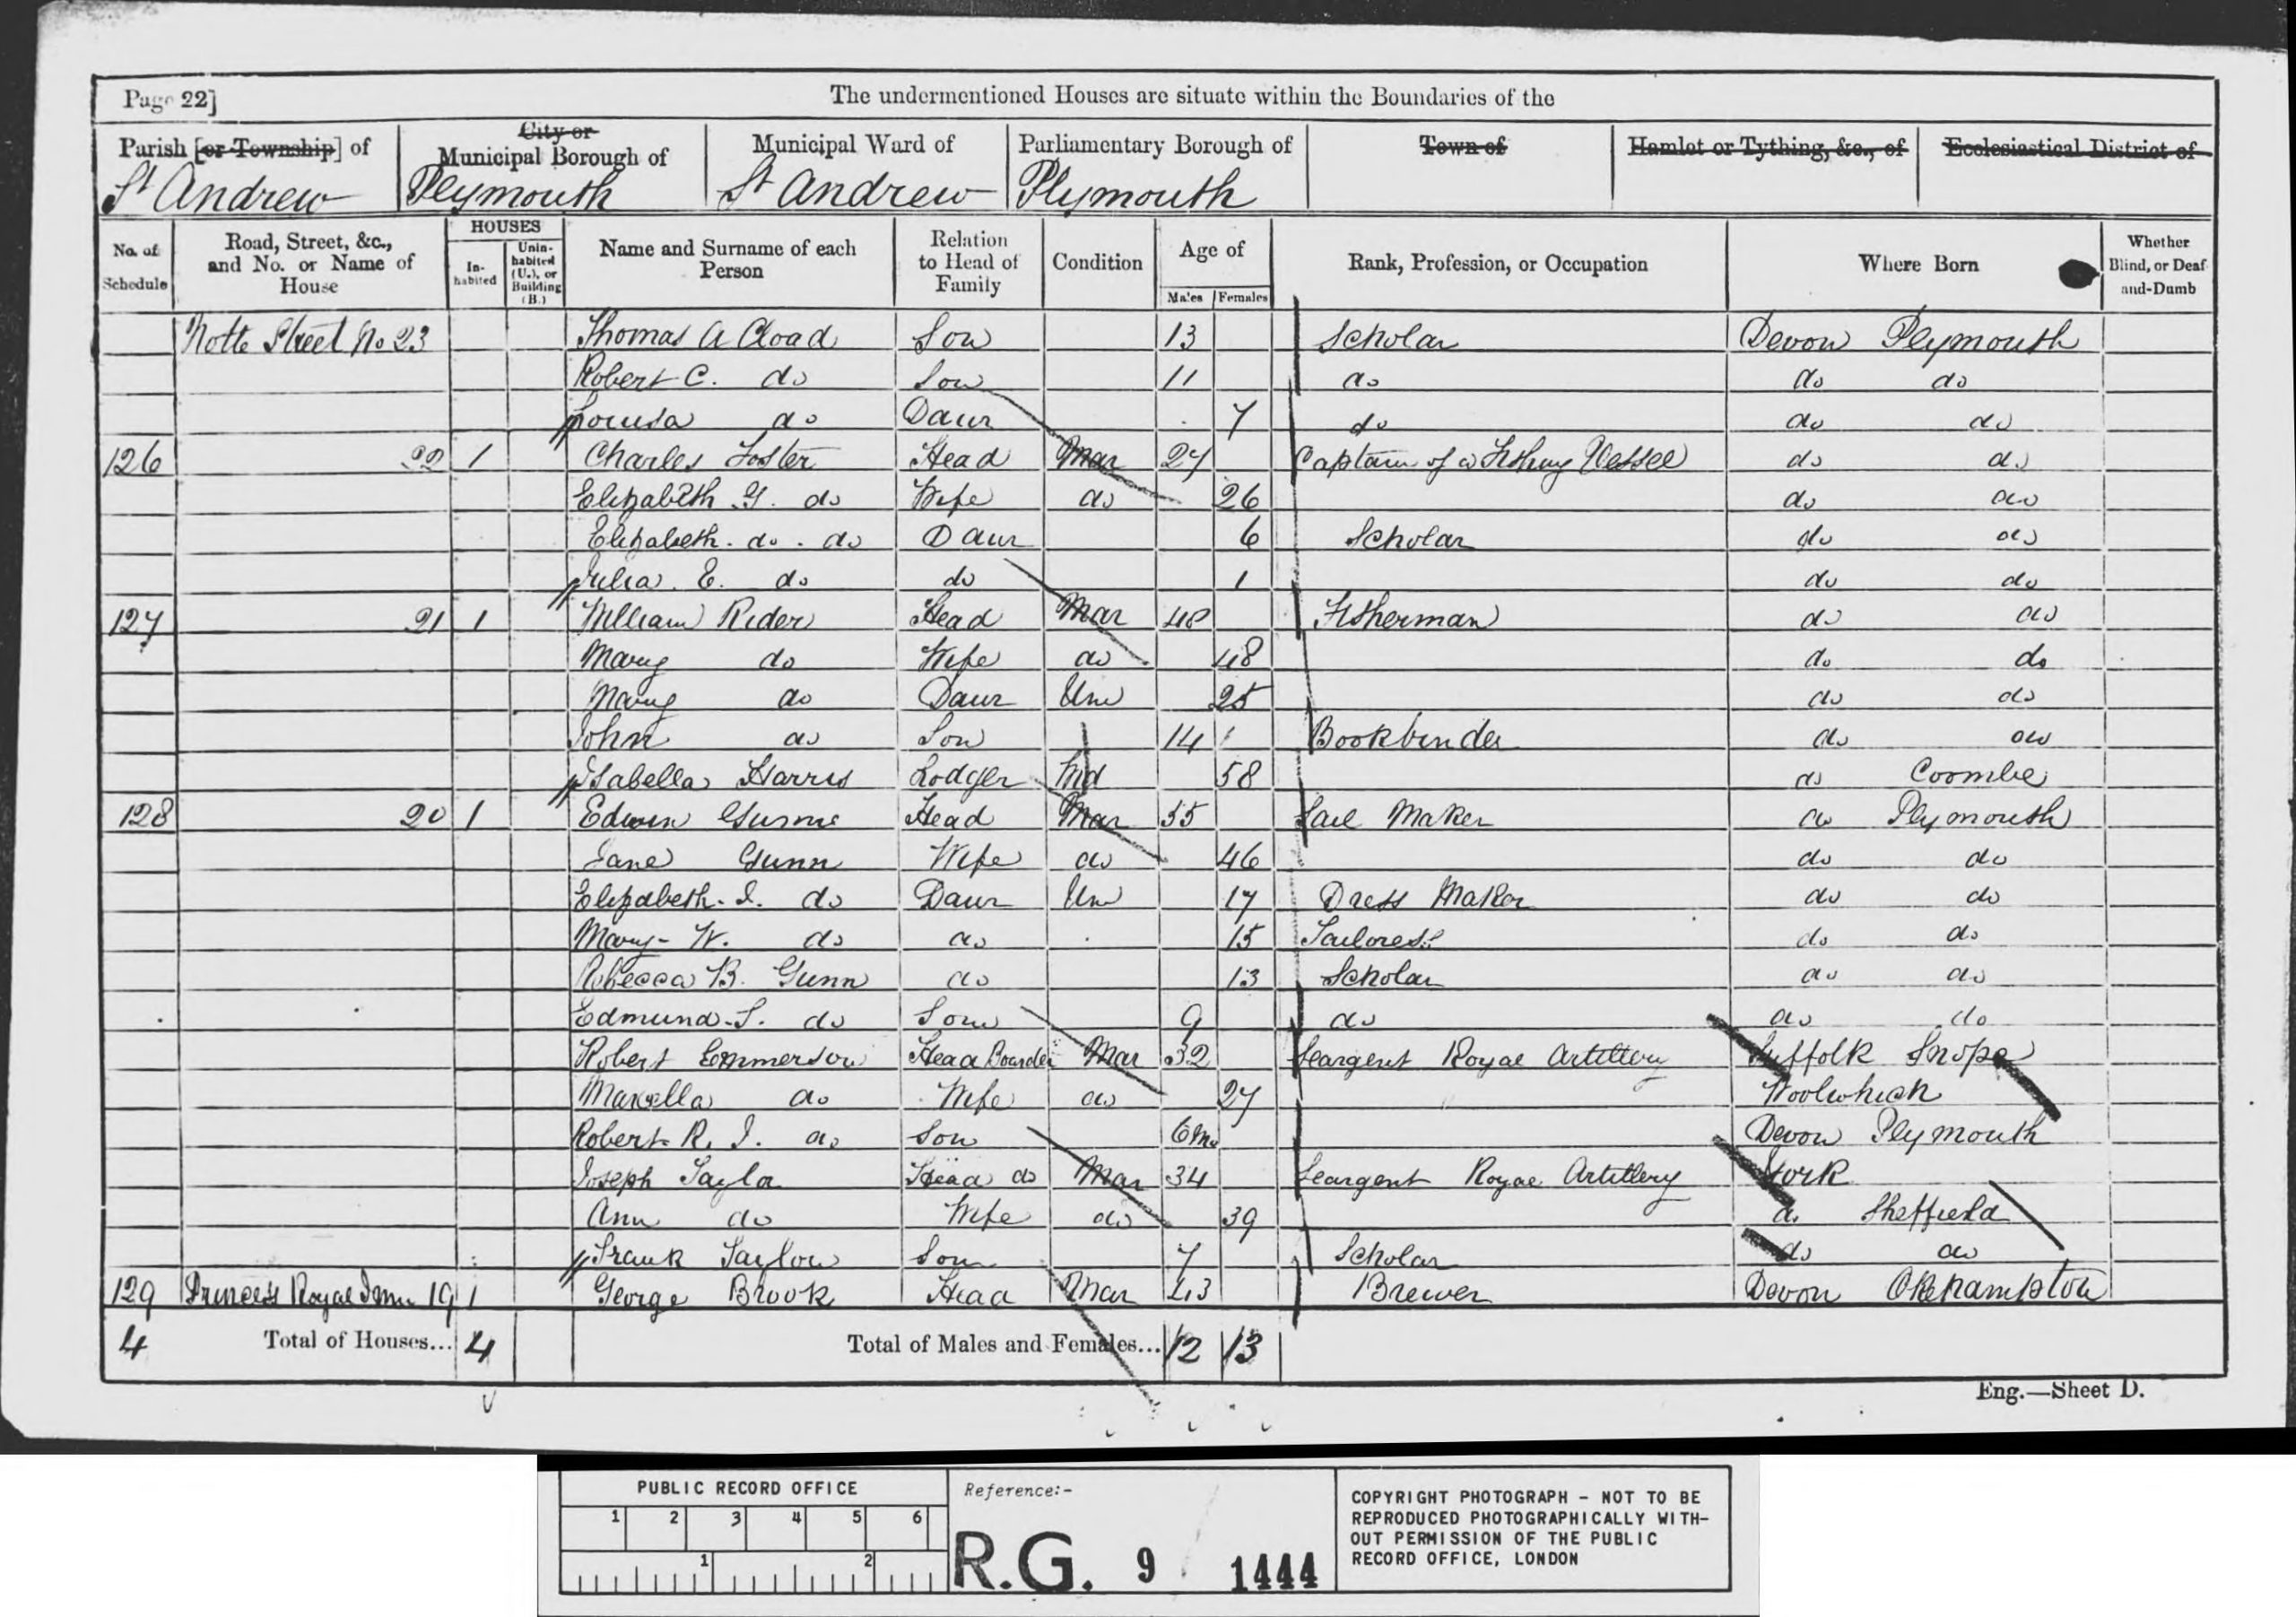 Page 22]
The undermentioned Houses are situate within the Boundaries of the
Parish [or Township] of
City or Municipal Borough of
Municipal Ward of
Parliamentary Borough of
Town of
Hamlet or Tything, &c., of
Ecclesiastical District of
St Andrew Plymouth St Andrew Plymouth
No. of Schedule
Road, Street, &c., and No. or Name of House
HOUSES
In-habited
Unin-habited (U.), or Building (B.)
Name and Surname of each Person
Relation to Head of Family
Condition
Age of
Males Females
Rank, Profession, or Occupation
Where Born
Whether Blind, or Deaf-and-Dumb
Notte Street No 23 Thomas A Cload Son 13 Scholar Devon Plymouth
Robert C. do Son 11 do do do
Louisa do Daur 7 do do do
126 22 1 Charles Foster Head Mar 27 Captain of a Fishing Vessel do do
Elizabeth G. do Wife do 26 do do
Elizabeth. do. do Daur 6 Scholar do do
Julia. E. do do 1 do do
127 21 1 William Rider Head Mar 48 Fisherman do do
Mary do Wife do 48 do do
Mary do Daur Un 25 do do
John do Son 14 Bookbinder do do
Isabella Harris Lodger Wd 58 do Coombe
128 20 1 Edwin Head Mar Sail Maker do Plymouth
Jane Gunn Wife do 46 do do
Elizabeth. I. do Daur Un 17 Dress Maker do do
Mary - W. do do 15 Tailoress do do
Rebecca B. Gunn do 13 Scholar do do
Edmund. S. do Son 9 do do do
Robert Emmerson Head Boarder Mar 32 Seargent Royal Artillery Suffolk Snope
Marcella do Wife do 27 Woolwhich
Robert R. I. do Son 6 Mo Devon Plymouth
Joseph Taylor Head do Mar 34 Seargent Royal Artillery York
Ann do Wife do 39 do Sheffield
Frank Taylor Son 7 Scholar do do
129 Princess Royal Inn 19 1 George Brook Head Mar 43 Brewer Devon Okehampton
4 Total of Houses... 4 Total of Males and Females... 12 13
Eng.—Sheet D.
PUBLIC RECORD OFFICE
1 2 3 4 5 6
1 2
Reference:-
R.G. 9 1444
COPYRIGHT PHOTOGRAPH - NOT TO BE
REPRODUCED PHOTOGRAPHICALLY WITH-
OUT PERMISSION OF THE PUBLIC
RECORD OFFICE, LONDON